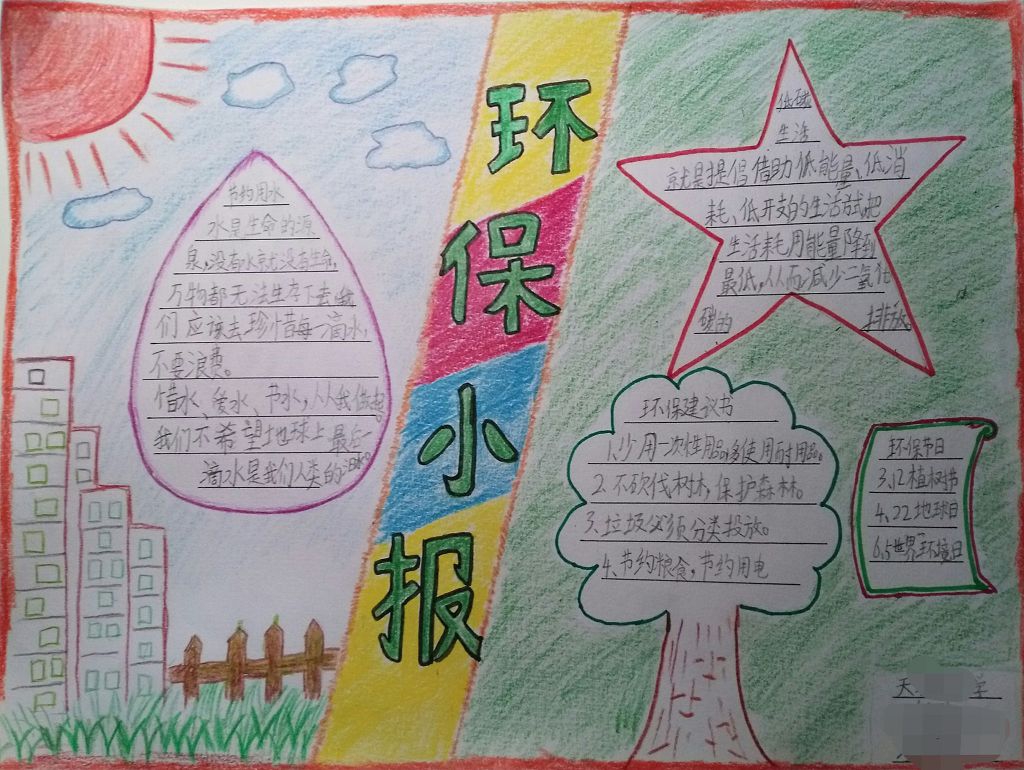 环
保
小
报
节约用水
水是生命的源
泉,没有水就没有生命,
万物都无法生存下去,我
们应该去珍惜每一滴水,
不要浪费。
惜水、爱水、节水,从我做起
我们不希望地球上最后一
滴水是我们人类的泪水。
低碳
生活
就是提倡借助低能量、低消
耗、低开支的生活方式,把
生活耗用能量降到
最低,从而减少二氧化
碳的 排放。
环保建议书
1.少用一次性用品,多使用耐用品。
2.不砍伐树林,保护森林。
3.垃圾必须分类投放。
4.节约粮食,节约用电
环保节日
3.12植树节
4.22地球日
6.5世界环境日
天 学